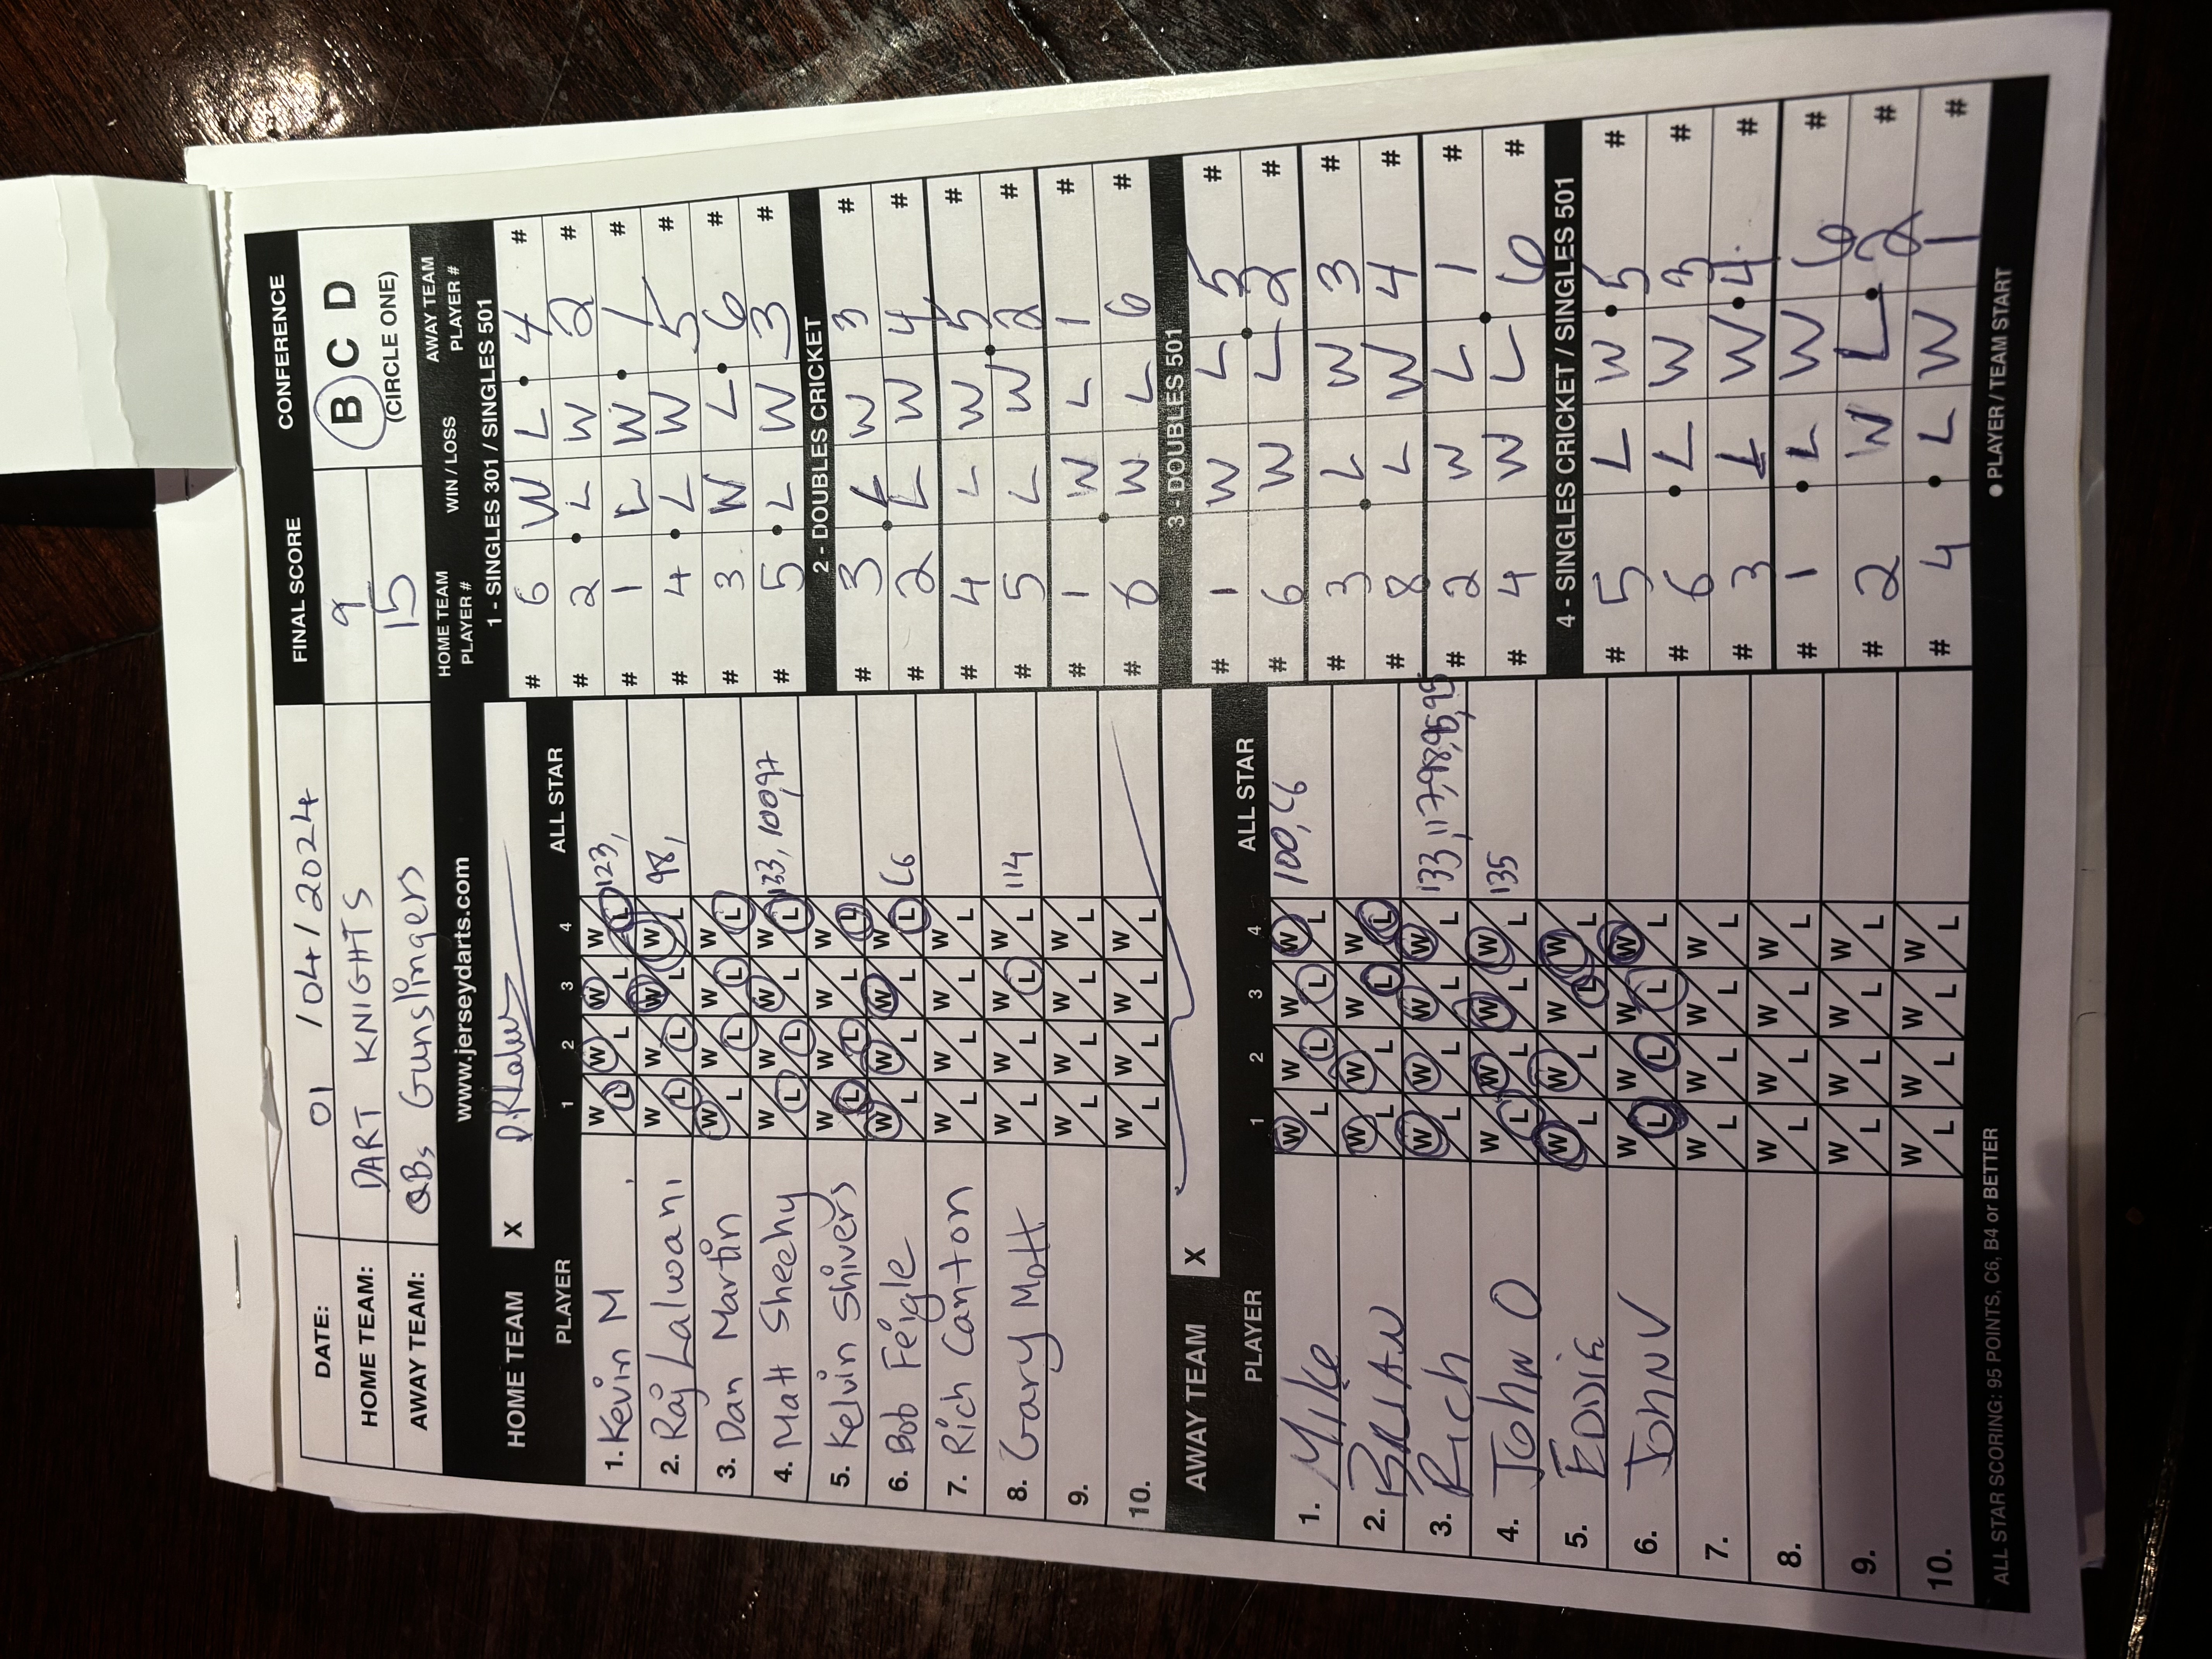 DATE: 01 / 04 / 2024 FINAL SCORE CONFERENCE
HOME TEAM: DART KNIGHTS 9 B C D
AWAY TEAM: QBs Gunslingers 15 (CIRCLE ONE)
www.jerseydarts.com
HOME TEAM X
PLAYER 1 2 3 4 ALL STAR
1. Kevin M W L W L W L W L 123,
2. Raj Lalwani W L W L W L W L 98,
3. Dan Martin W L W L W L W L
4. Matt Sheehy W L W L W L W L 133, 100, 97
5. Kelvin Shivers W L W L W L W L
6. Bob Feigle W L W L W L W L C6
7. Rich Canton W L W L W L W L
8. Gary Mott W L W L W L W L 114
9. W L W L W L W L
10. W L W L W L W L
AWAY TEAM X
PLAYER 1 2 3 4 ALL STAR
1. Mike W L W L W L W L 100, C6
2. BRIAN W L W L W L W L
3. Rich W L W L W L W L 133, 117, 98, 95, 95
4. John O W L W L W L W L 135
5. EDDIE W L W L W L W L
6. JOHN V W L W L W L W L
7. W L W L W L W L
8. W L W L W L W L
9. W L W L W L W L
10. W L W L W L W L
HOME TEAM PLAYER # WIN / LOSS AWAY TEAM PLAYER #
1 - SINGLES 301 / SINGLES 501
# 6 W L 4 #
# 2 L W 2 #
# 1 L W 1 #
# 4 L W 5 #
# 3 W L 6 #
# 5 L W 3 #
2 - DOUBLES CRICKET
# 3 L W 3 #
# 2 L W 4 #
# 4 L W 5 #
# 5 L W 2 #
# 1 W L 1 #
# 6 W L 6 #
3 - DOUBLES 501
# 1 W L 5 #
# 6 W L 2 #
# 3 L W 3 #
# 8 L W 4 #
# 2 W L 1 #
# 4 W L 6 #
4 - SINGLES CRICKET / SINGLES 501
# 5 L W 5 #
# 6 L W 3 #
# 3 L W 4 #
# 1 L W 6 #
# 2 W L 2 #
# 4 L W 1 #
ALL STAR SCORING: 95 POINTS, C6, B4 or BETTER ● PLAYER / TEAM START